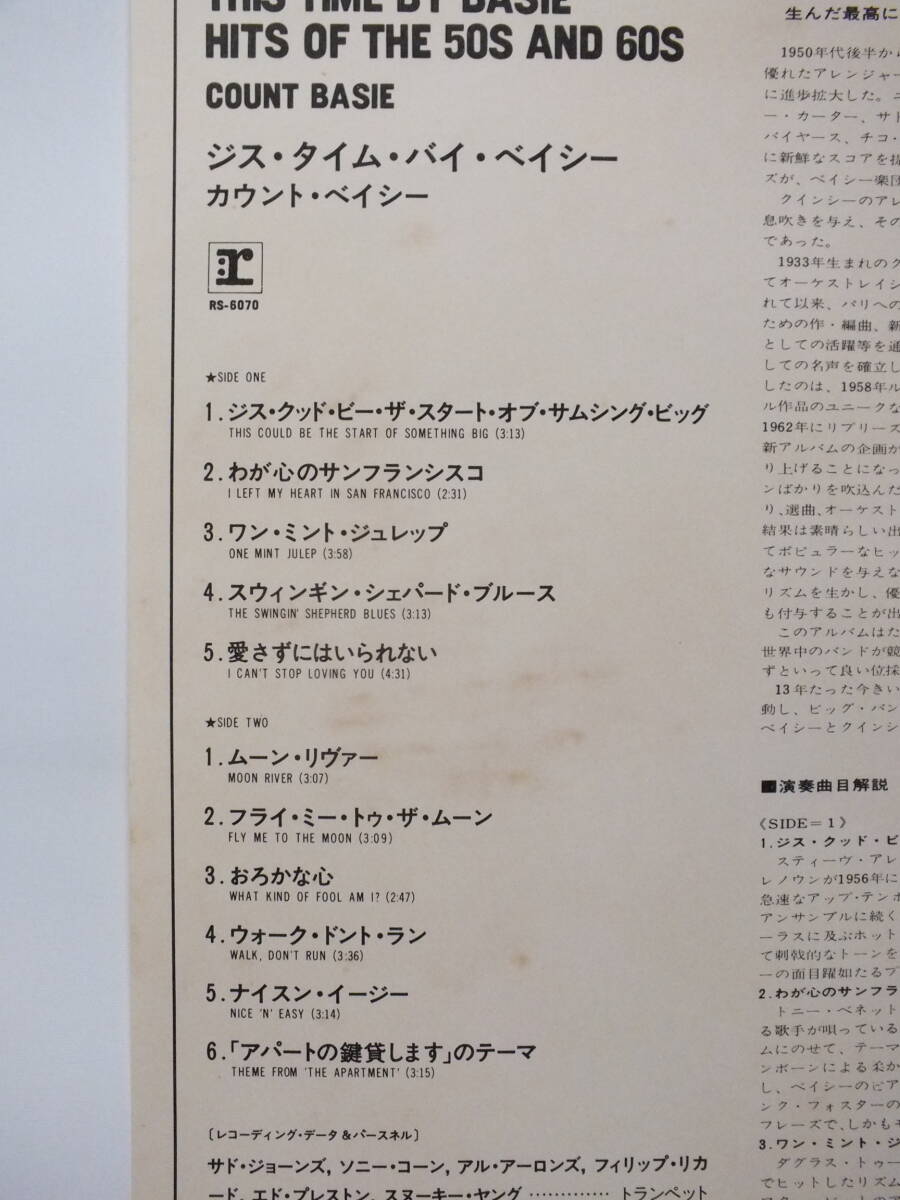 THIS TIME BY BASIE
HITS OF THE 50S AND 60S
COUNT BASIE
ジス・タイム・バイ・ベイシー
カウント・ベイシー
r
RS-6070
★SIDE ONE
1.ジス・クッド・ビー・ザ・スタート・オブ・サムシング・ビッグ
THIS COULD BE THE START OF SOMETHING BIG (3:13)
2.わが心のサンフランシスコ
I LEFT MY HEART IN SAN FRANCISCO (2:31)
3.ワン・ミント・ジュレップ
ONE MINT JULEP (3:58)
4.スウィンギン・シェパード・ブルース
THE SWINGIN' SHEPHERD BLUES (3:13)
5.愛さずにはいられない
I CAN'T STOP LOVING YOU (4:31)
★SIDE TWO
1.ムーン・リヴァー
MOON RIVER (3:07)
2.フライ・ミー・トゥ・ザ・ムーン
FLY ME TO THE MOON (3:09)
3.おろかな心
WHAT KIND OF FOOL AM I? (2:47)
4.ウォーク・ドント・ラン
WALK, DON'T RUN (3:36)
5.ナイスン・イージー
NICE 'N' EASY (3:14)
6.「アパートの鍵貸します」のテーマ
THEME FROM 'THE APARTMENT' (3:15)
〔レコーディング・データ&パースネル〕
サド・ジョーンズ, ソニー・コーン, アル・アーロンズ, フィリップ・リカ
ード, エド・プレストン, スヌーキー・ヤング …………トランペット
生んだ最高に
1950年代後半か
優れたアレンジャー
に進歩拡大した。
ー・カーター、サド
バイヤース、チコ・
に新鮮なスコアを提
ズが、ベイシー楽団
クインシーのアレ
息吹きを与え、その
であった。
1933年生まれのク
てオーケストレイシ
れて以来、パリへの
ための作・編曲、新
としての活躍等を通
しての名声を確立し
したのは、1958年ル
ル作品のユニークな
1962年にリプリーズ
新アルバムの企画が
り上げることになっ
ンばかりを吹込んた
り、選曲、オーケスト
結果は素晴らしい出
てポピュラーなヒッ
なサウンドを与えな
リズムを生かし、優
も付与することが出
このアルバムはた
世界中のバンドが競
ずといって良い位採
13年たった今きい
動し、ビッグ・バン
ベイシーとクインシ
■演奏曲目解説
《SIDE=1》
1.ジス・クッド・ビ
スティーヴ・アレ
レノウンが1956年に
急速なアップ・テンポ
アンサンブルに続く
ーラスに及ぶホット
て刺戟的なトーンを
ーの面目躍如たるプ
2.わが心のサンフラ
トニー・ベネット
る歌手が唄っている
ムにのせて、テーマ
ンボーンによる柔か
し、ベイシーのピア
ンク・フォスターの
フレーズで、しかも
3.ワン・ミント・ジ
ダグラス・トゥー
でヒットしたリズム